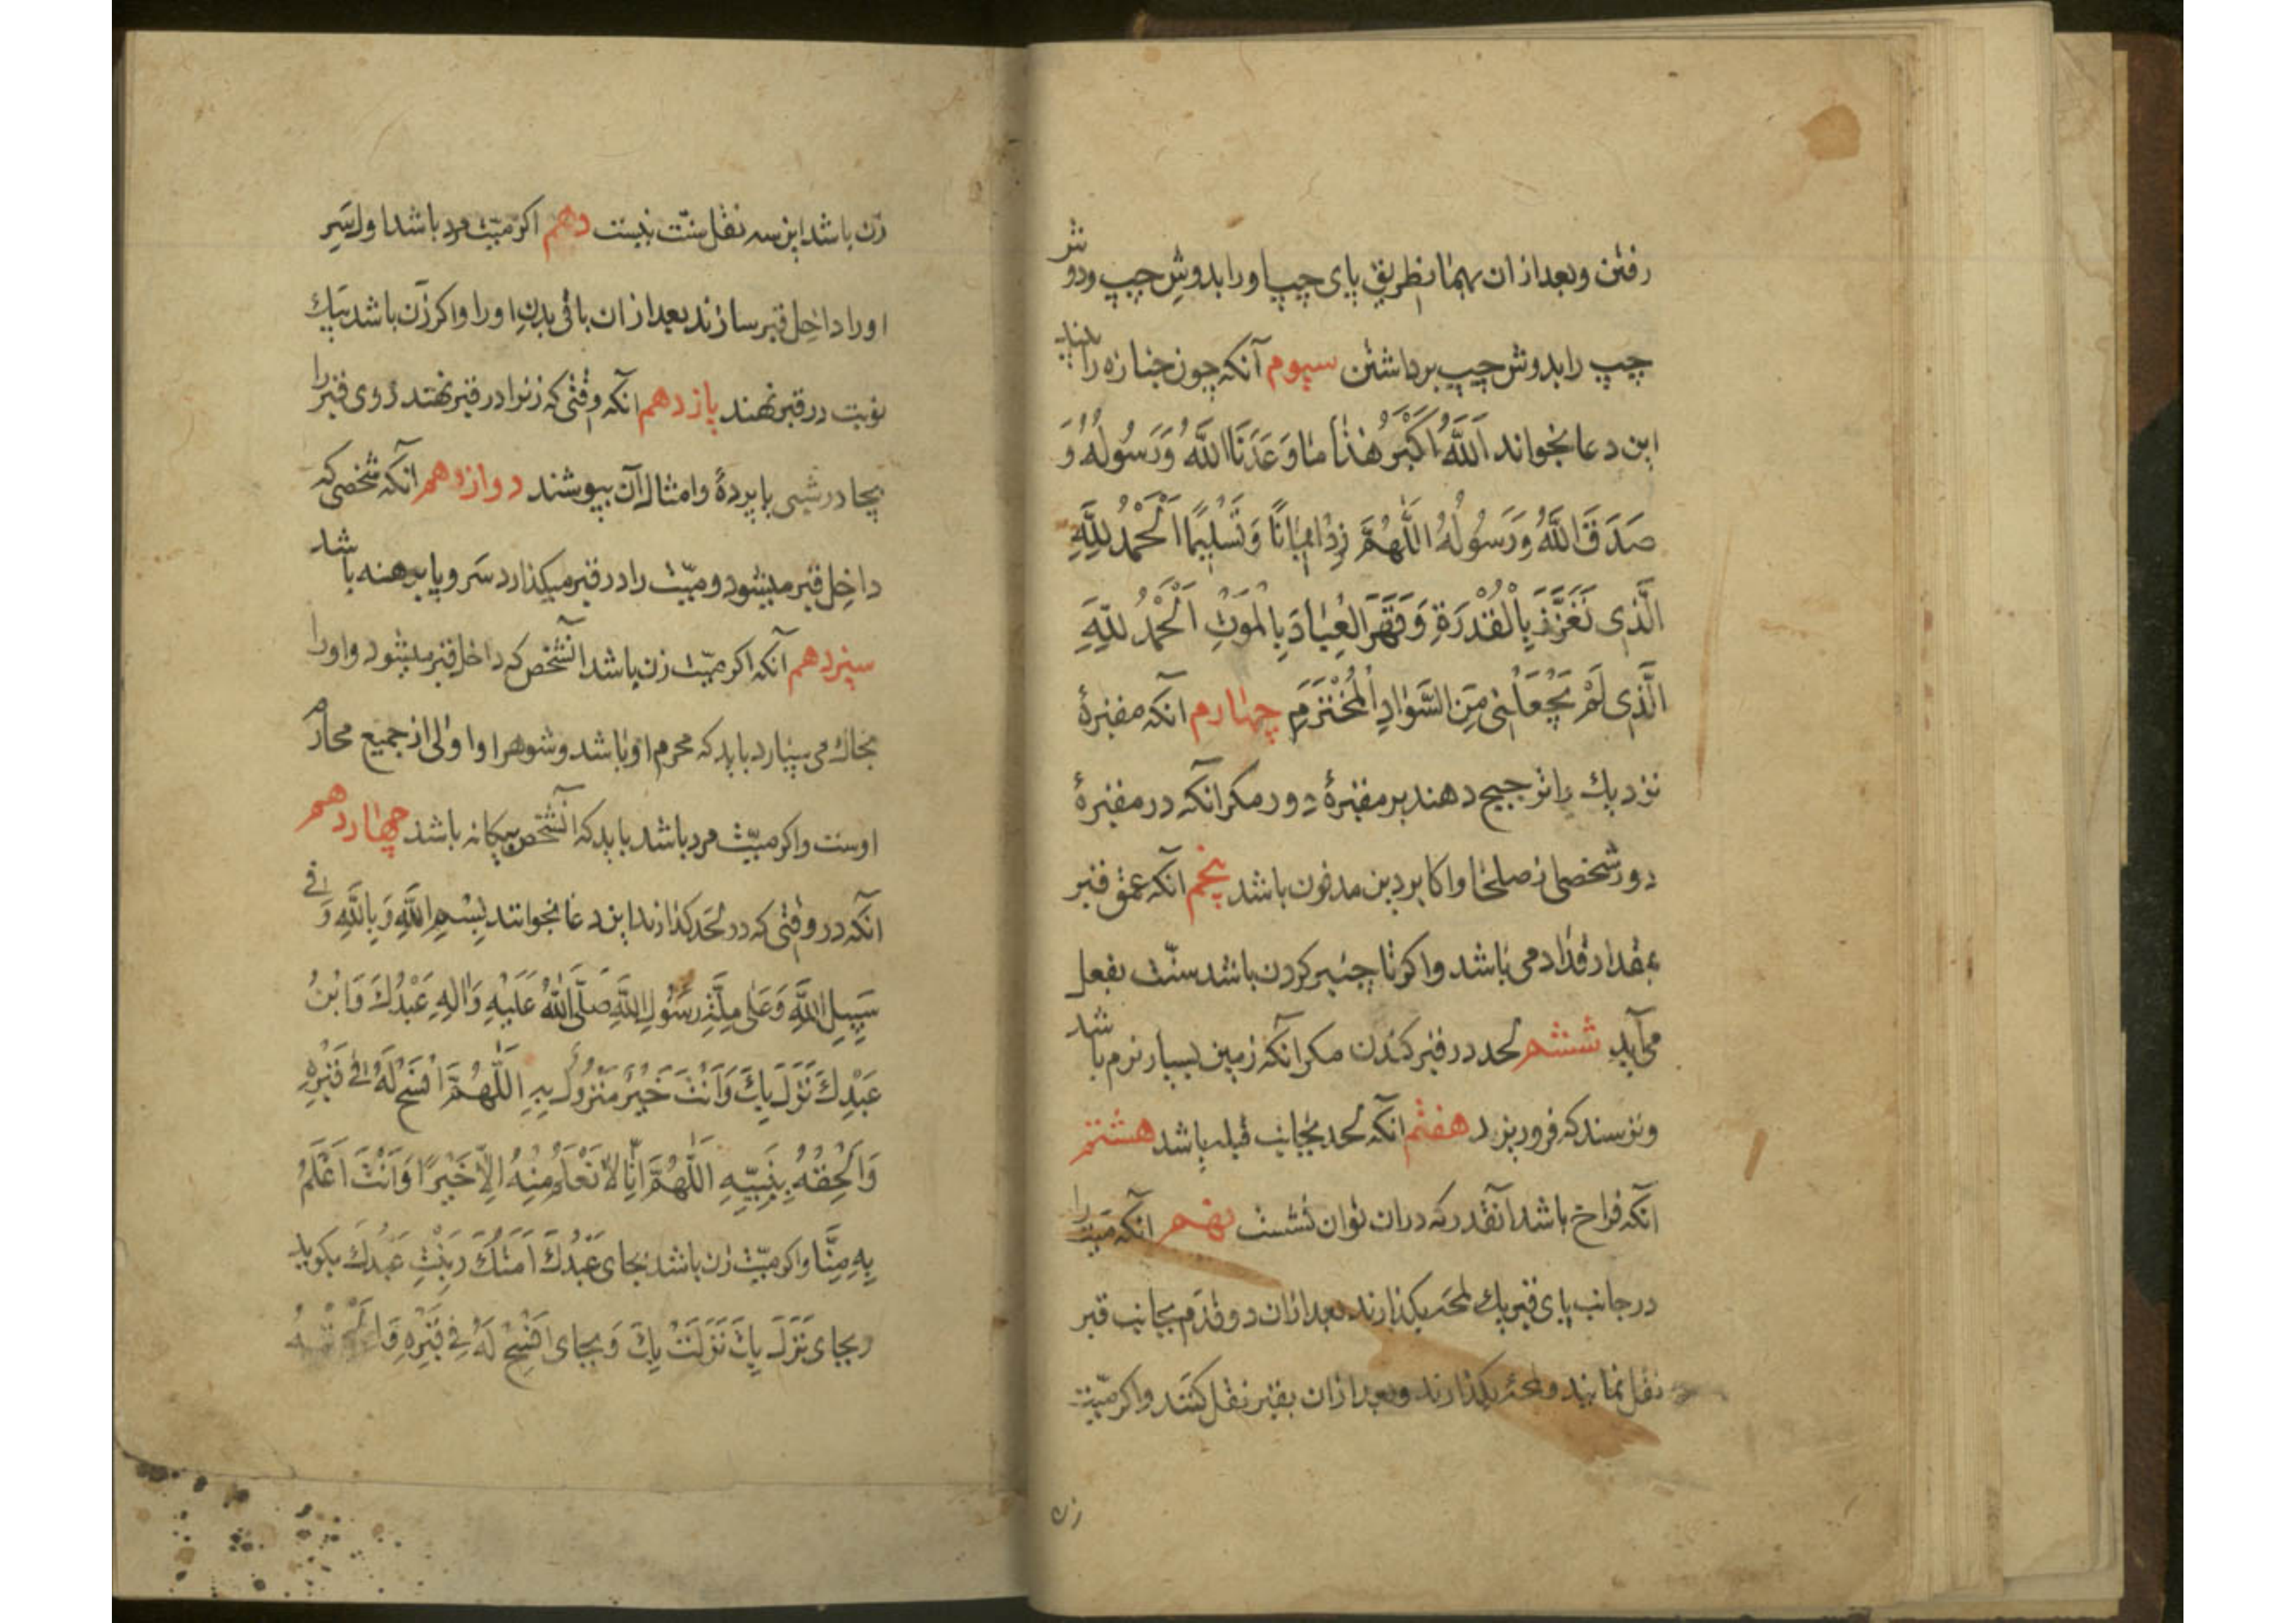 رفتن و بعد از ان بهمان طریق پای چپ او را بدوش چپ و دوش
چپ را بدوش چپ برداشتن سیوم آنکه چون جنازه را
این دعا بخواند اَللّٰهُ اَكْبَرُ هٰذٰا مٰا وَعَدَنَا اللّٰهُ وَرَسُولُهُ وَ
صَدَقَ اللّٰهُ وَرَسُولُهُ اَللّٰهُمَّ زِدْنٰا اِیمٰانًا وَتَسْلِیمًا اَلْحَمْدُ لِلّٰهِ
الَّذِی تَعَزَّزَ بِالْقُدْرَةِ وَقَهَرَ الْعِبٰادَ بِالْمَوْتِ اَلْحَمْدُ لِلّٰهِ
الَّذِی لَمْ یَجْعَلْنِی مِنَ السَّوٰادِ الْمُخْتَرَمِ چهارم آنکه مقبرهٔ
نزدیک را ترجیح دهند بر مقبرهٔ دور مکر انکه در مقبرهٔ
دور شخصی از صلحا و اکابر دین مدفون باشد پنجم آنکه عمق قبر
بمقدار قد ادمی باشد و اکر تا چنبر کردن باشد سنّت بفعل
می آید ششم لحد در قبر کندن مکر آنکه زمین بسیار نرم باشد
و ترسند که فرو ریزد هفتم آنکه لحد بجانب قبله باشد هشتم
آنکه فراخ باشد آنقدر که در ان توان نشست نهم آنکه میّت را
در جانب پای قبر یک لمحه بگذارند بعد از ان دو قدم بجانب قبر
نقل نمایند و لمحهٔ بگذارند و بعد از ان بقبر نقل کنند و اکر میّت
زن
زن باشد این سه نقل سنّت نیست دهم اکر میّت مرد باشد اول سَرِ
او را داخل قبر سازند بعد از ان باقی بدن او را و اکر زن باشد بیک
نوبت در قبر نهند یازدهم آنکه وقتی که زنرا در قبر نهند روی قبر را
بچادر شبی یا پردهٔ و امثال آن بپوشند دوازدهم آنکه شخصی که
داخل قبر میشود و میّت را در قبر میکذارد سر و پا برهنه باشد
سیزدهم آنکه اکر میّت زن باشد آنشخص که داخل قبر میشود و او را
بخاک می سپارد باید که محرم او باشد و شوهر او اولی از جمیع محارم
اوست و اکر میّت مرد باشد باید که آنشخص بیکانه باشد چهاردهم
آنکه در وقتی که در لحد کذارند این دعا بخوانند بِسْمِ اللّٰهِ وَبِاللّٰهِ وَفِی
سَبِیلِ اللّٰهِ وَعَلٰی مِلَّةِ رَسُولِ اللّٰهِ صَلَّی اللّٰهُ عَلَیْهِ وَاٰلِهِ عَبْدُكَ وَابْنُ
عَبْدِكَ نَزَلَ بِكَ وَاَنْتَ خَیْرُ مَنْزُولٍ بِهِ اَللّٰهُمَّ افْسَحْ لَهُ فِی قَبْرِهِ
وَاَلْحِقْهُ بِنَبِیِّهِ اَللّٰهُمَّ اِنّٰا لاٰ نَعْلَمُ مِنْهُ اِلاّٰ خَیْرًا وَاَنْتَ اَعْلَمُ
بِهِ مِنَّا و اکر میّت زن باشد بجای عَبْدُكَ اَمَتُكَ وَبِنْتُ عَبْدِكَ بکوید
و بجای نَزَلَ بِكَ نَزَلَتْ بِكَ وَ بجای افْسَحْ لَهُ فِی قَبْرِهِ وَاَلْحِقْهُ